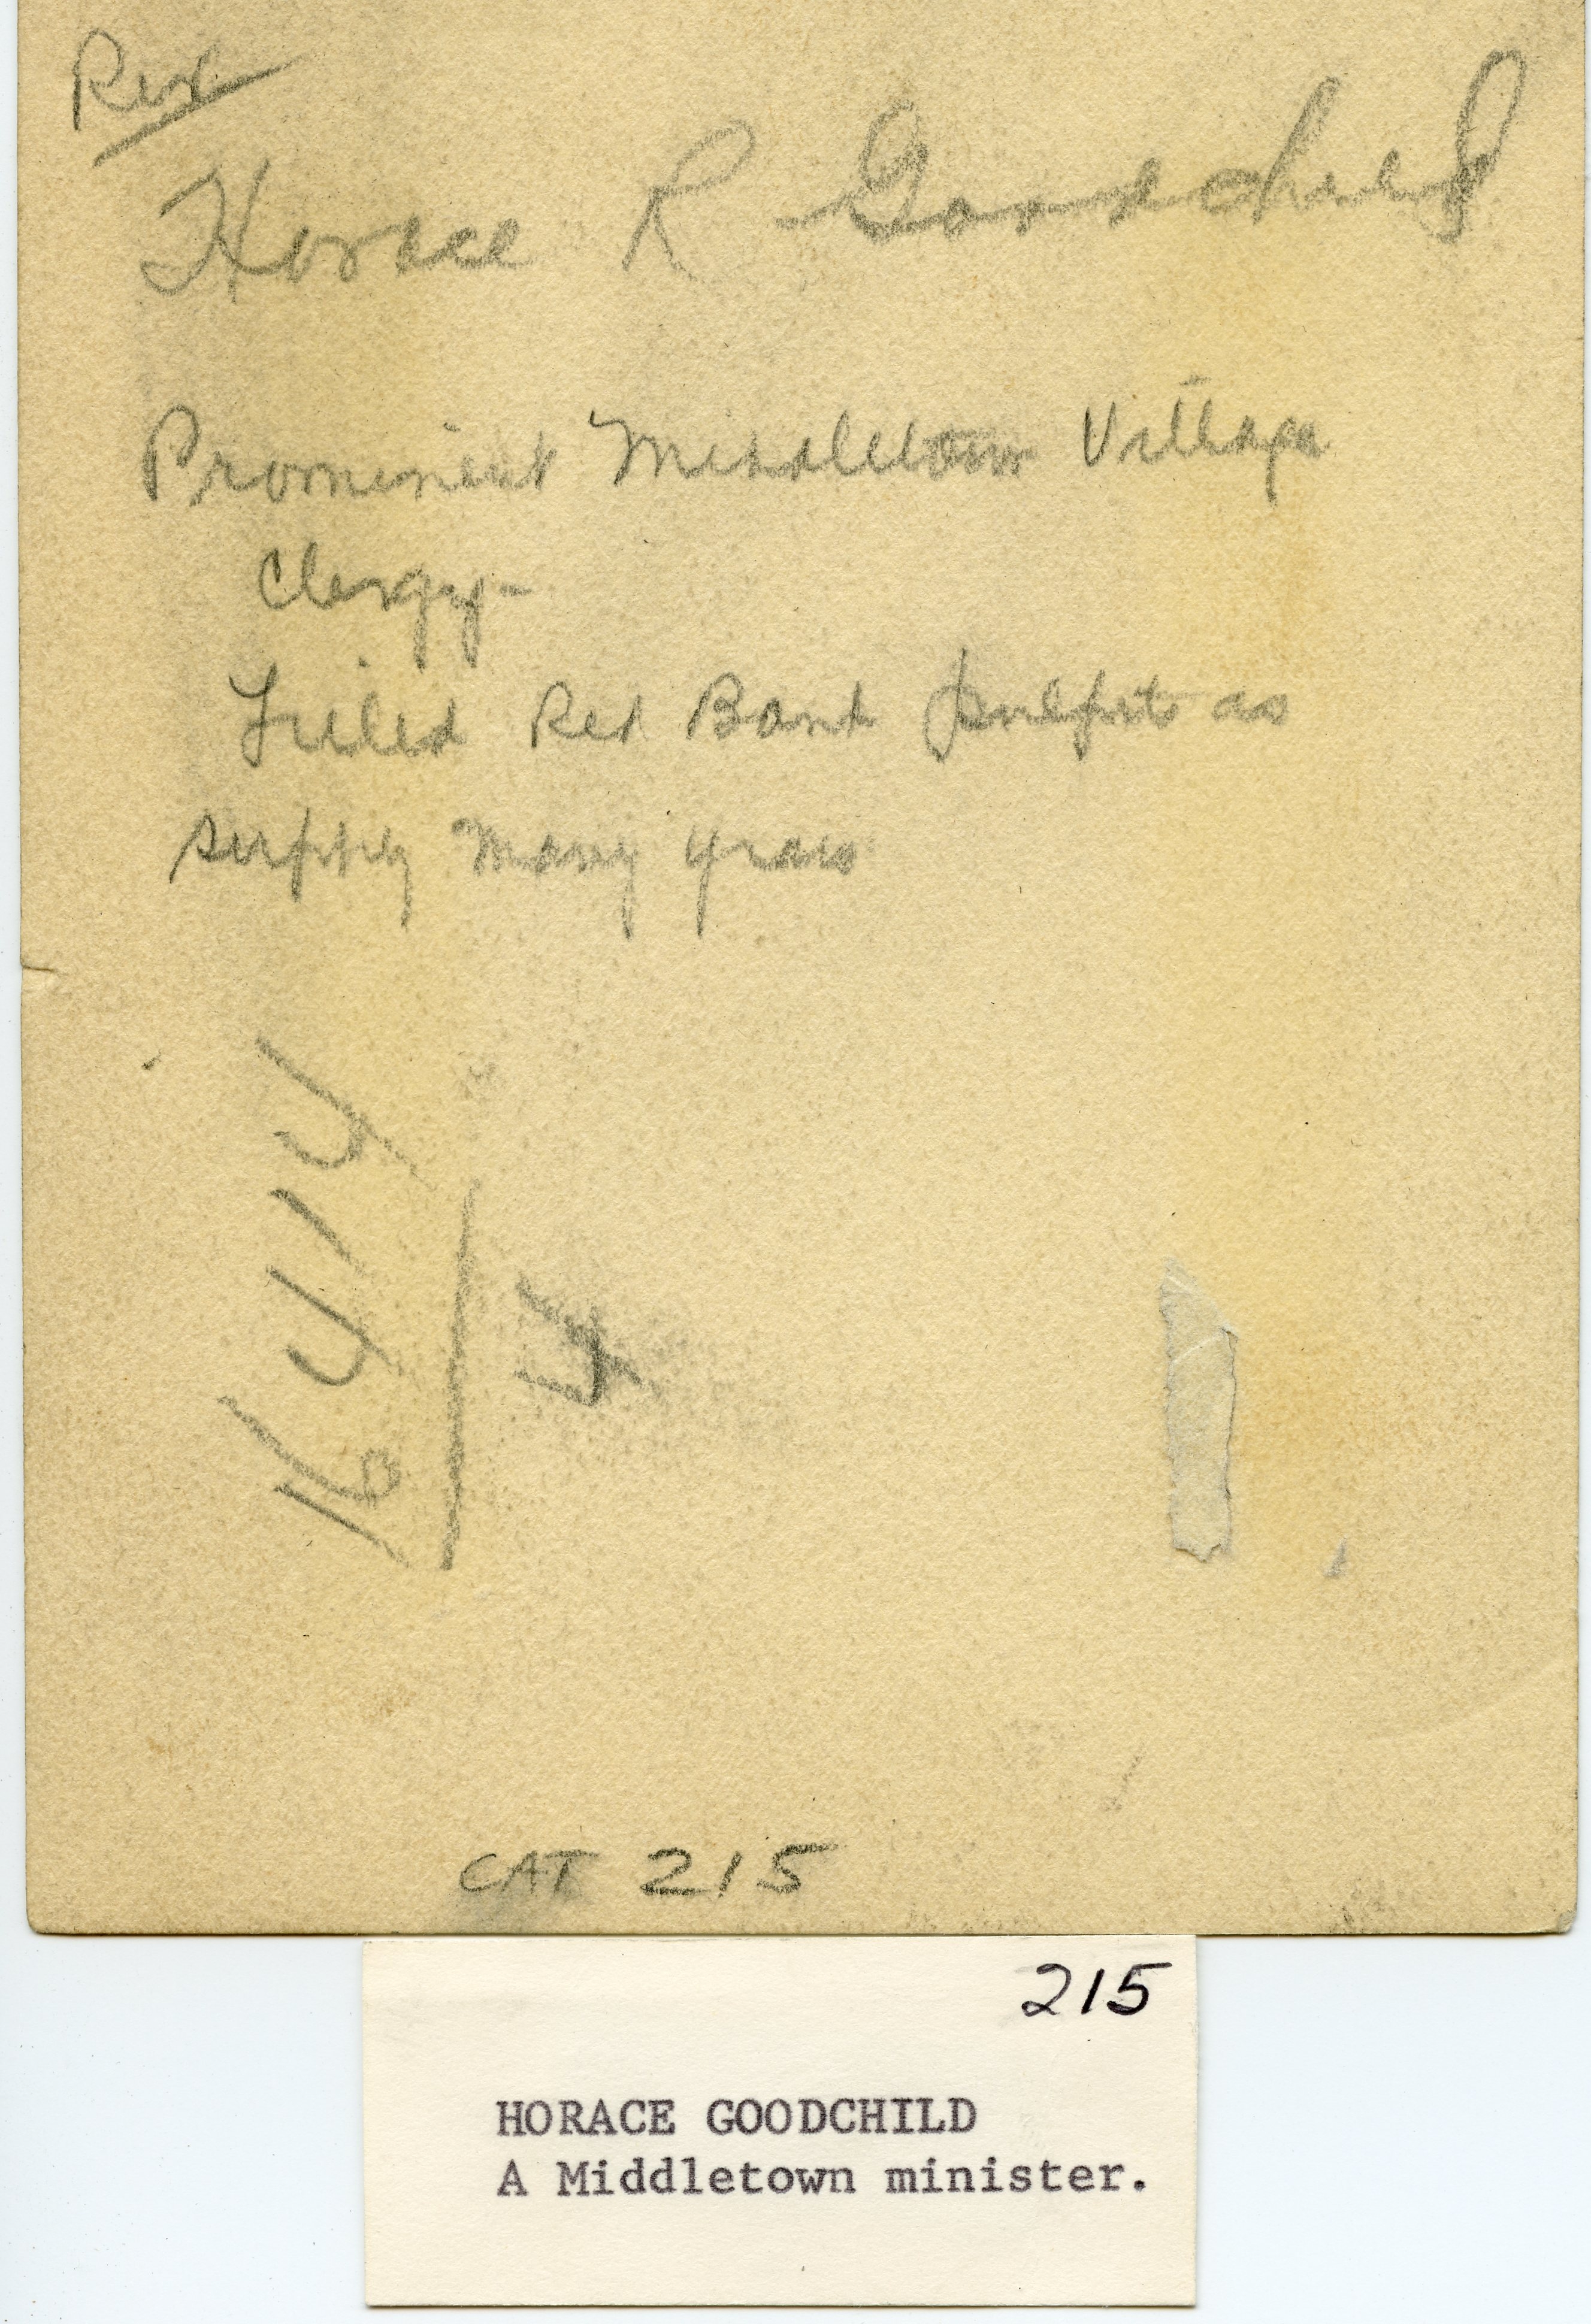 Rev
Horace R Goodchild
Prominent Middletown Village
Clergy-
Filled Red Bank pulpits as
supply many years
16414
4
CAT 215
215
HORACE GOODCHILD
A Middletown minister.